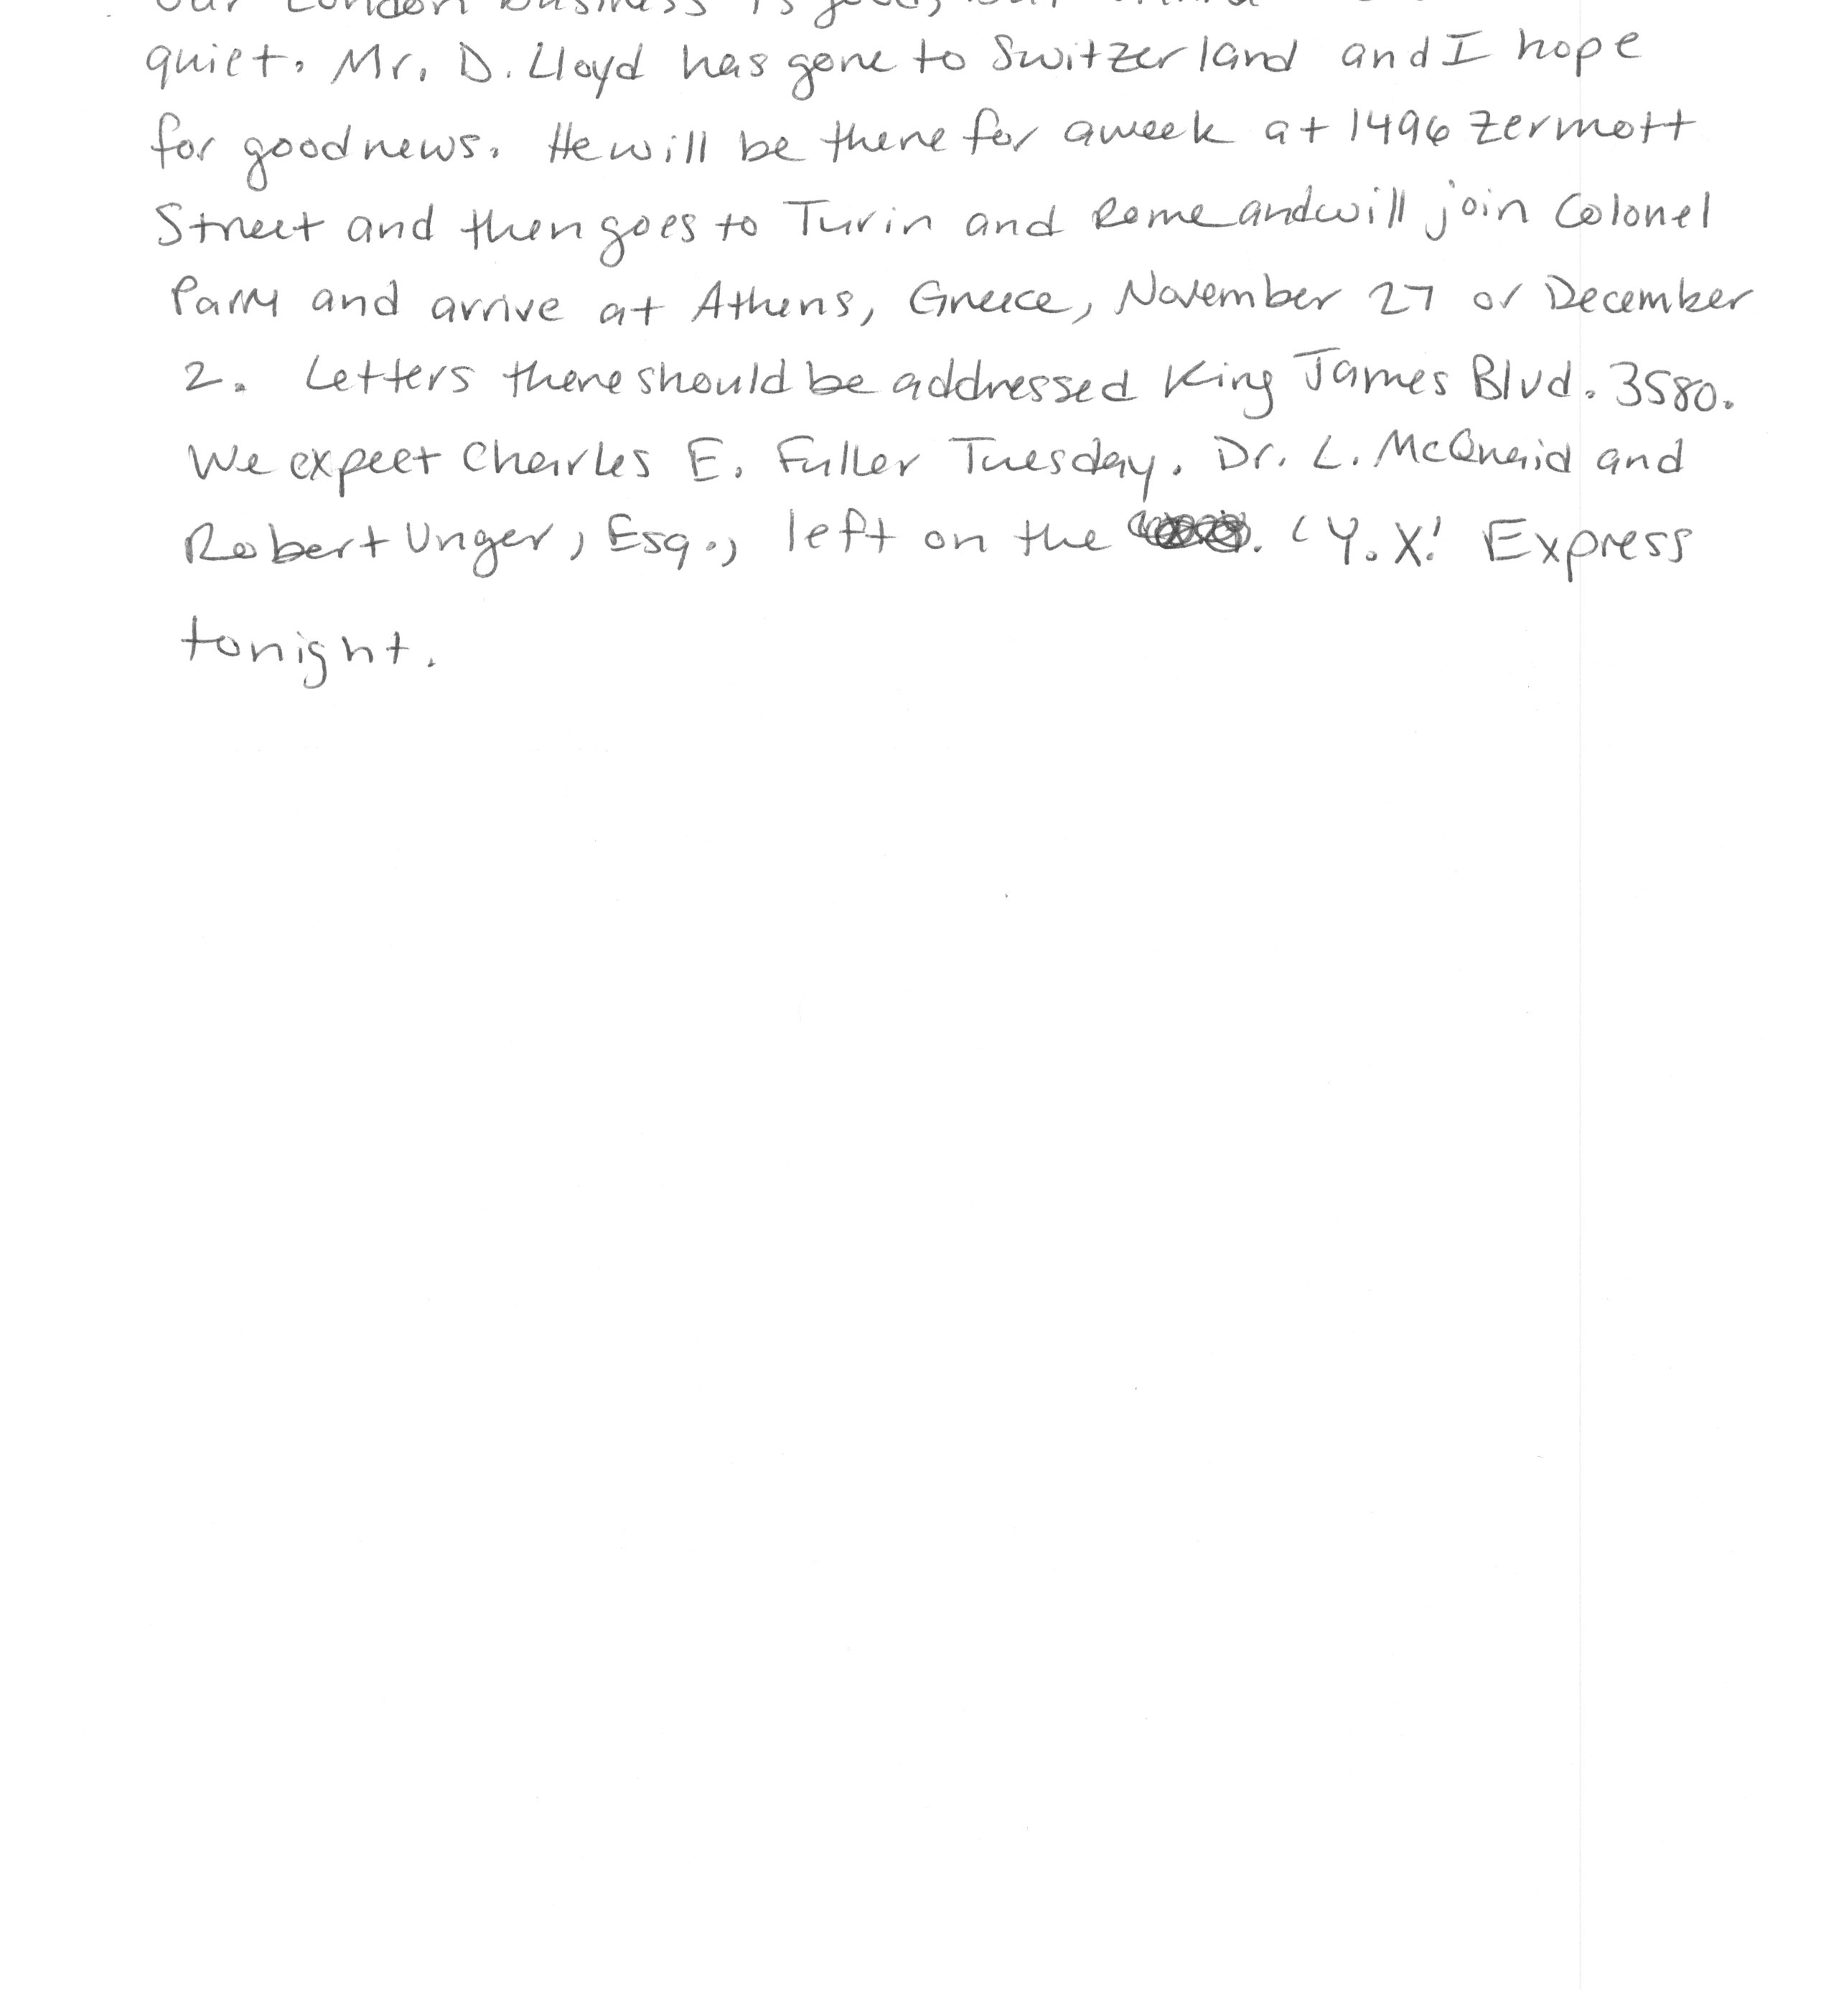 our London business is good, but
quiet. Mr. D. Lloyd has gone to Switzerland and I hope
for good news. He will be there for a week at 1496 Zermott
Street and then goes to Turin and Rome and will join Colonel
Parry and arrive at Athens, Greece, November 27 or December
2. Letters there should be addressed King James Blvd. 3580.
We expect Charles E. Fuller Tuesday. Dr. L. McQuaid and
Robert Unger, Esq., left on the 'Y.X.' Express
tonight.